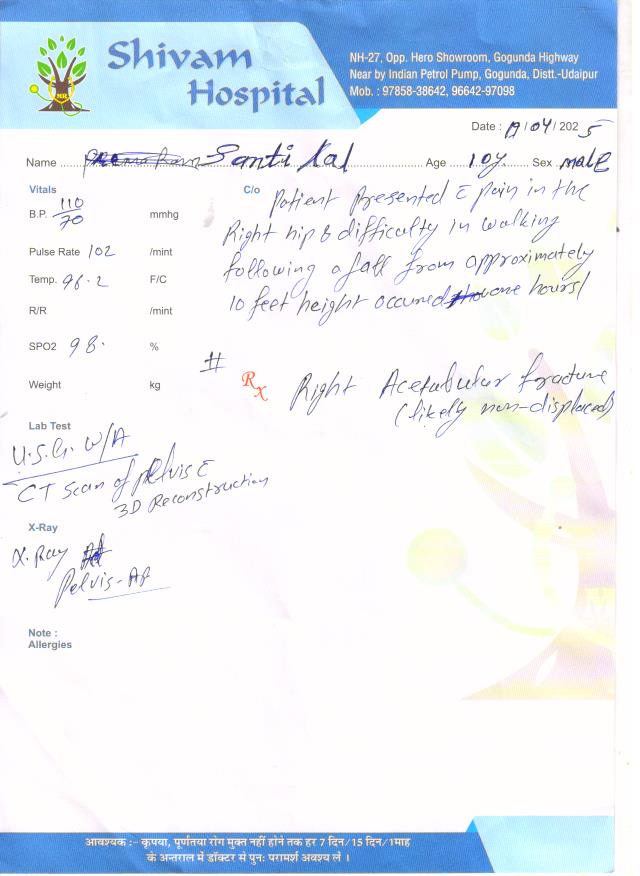 Shivam
Hospital
NH-27, Opp. Hero Showroom, Gogunda Highway
Near by Indian Petrol Pump, Gogunda, Distt.-Udaipur
Mob. : 97858-38642, 96642-97098
MR
Date : 19/04/2025
Name Santi Lal Age 10y. Sex male
Vitals
B.P. 110/70 mmhg
Pulse Rate 102 /mint
Temp. 96.2 F/C
R/R /mint
SPO2 98. %
Weight kg
C/o Patient Presented c pain in the
Right hip & difficulty in walking
following a fall from approximately
10 feet height occured one hours/
# Rx Right Acetabular fracture
(likely non-displaced)
Lab Test
U.S.G. W/A
CT Scan of Pelvis c
3D Reconstruction
X-Ray
X-Ray
Pelvis-AP
Note :
Allergies
आवश्यक :- कृपया, पूर्णतया रोग मुक्त नहीं होने तक हर 7 दिन/15 दिन/1माह
के अन्तराल में डॉक्टर से पुनः परामर्श अवश्य लें ।